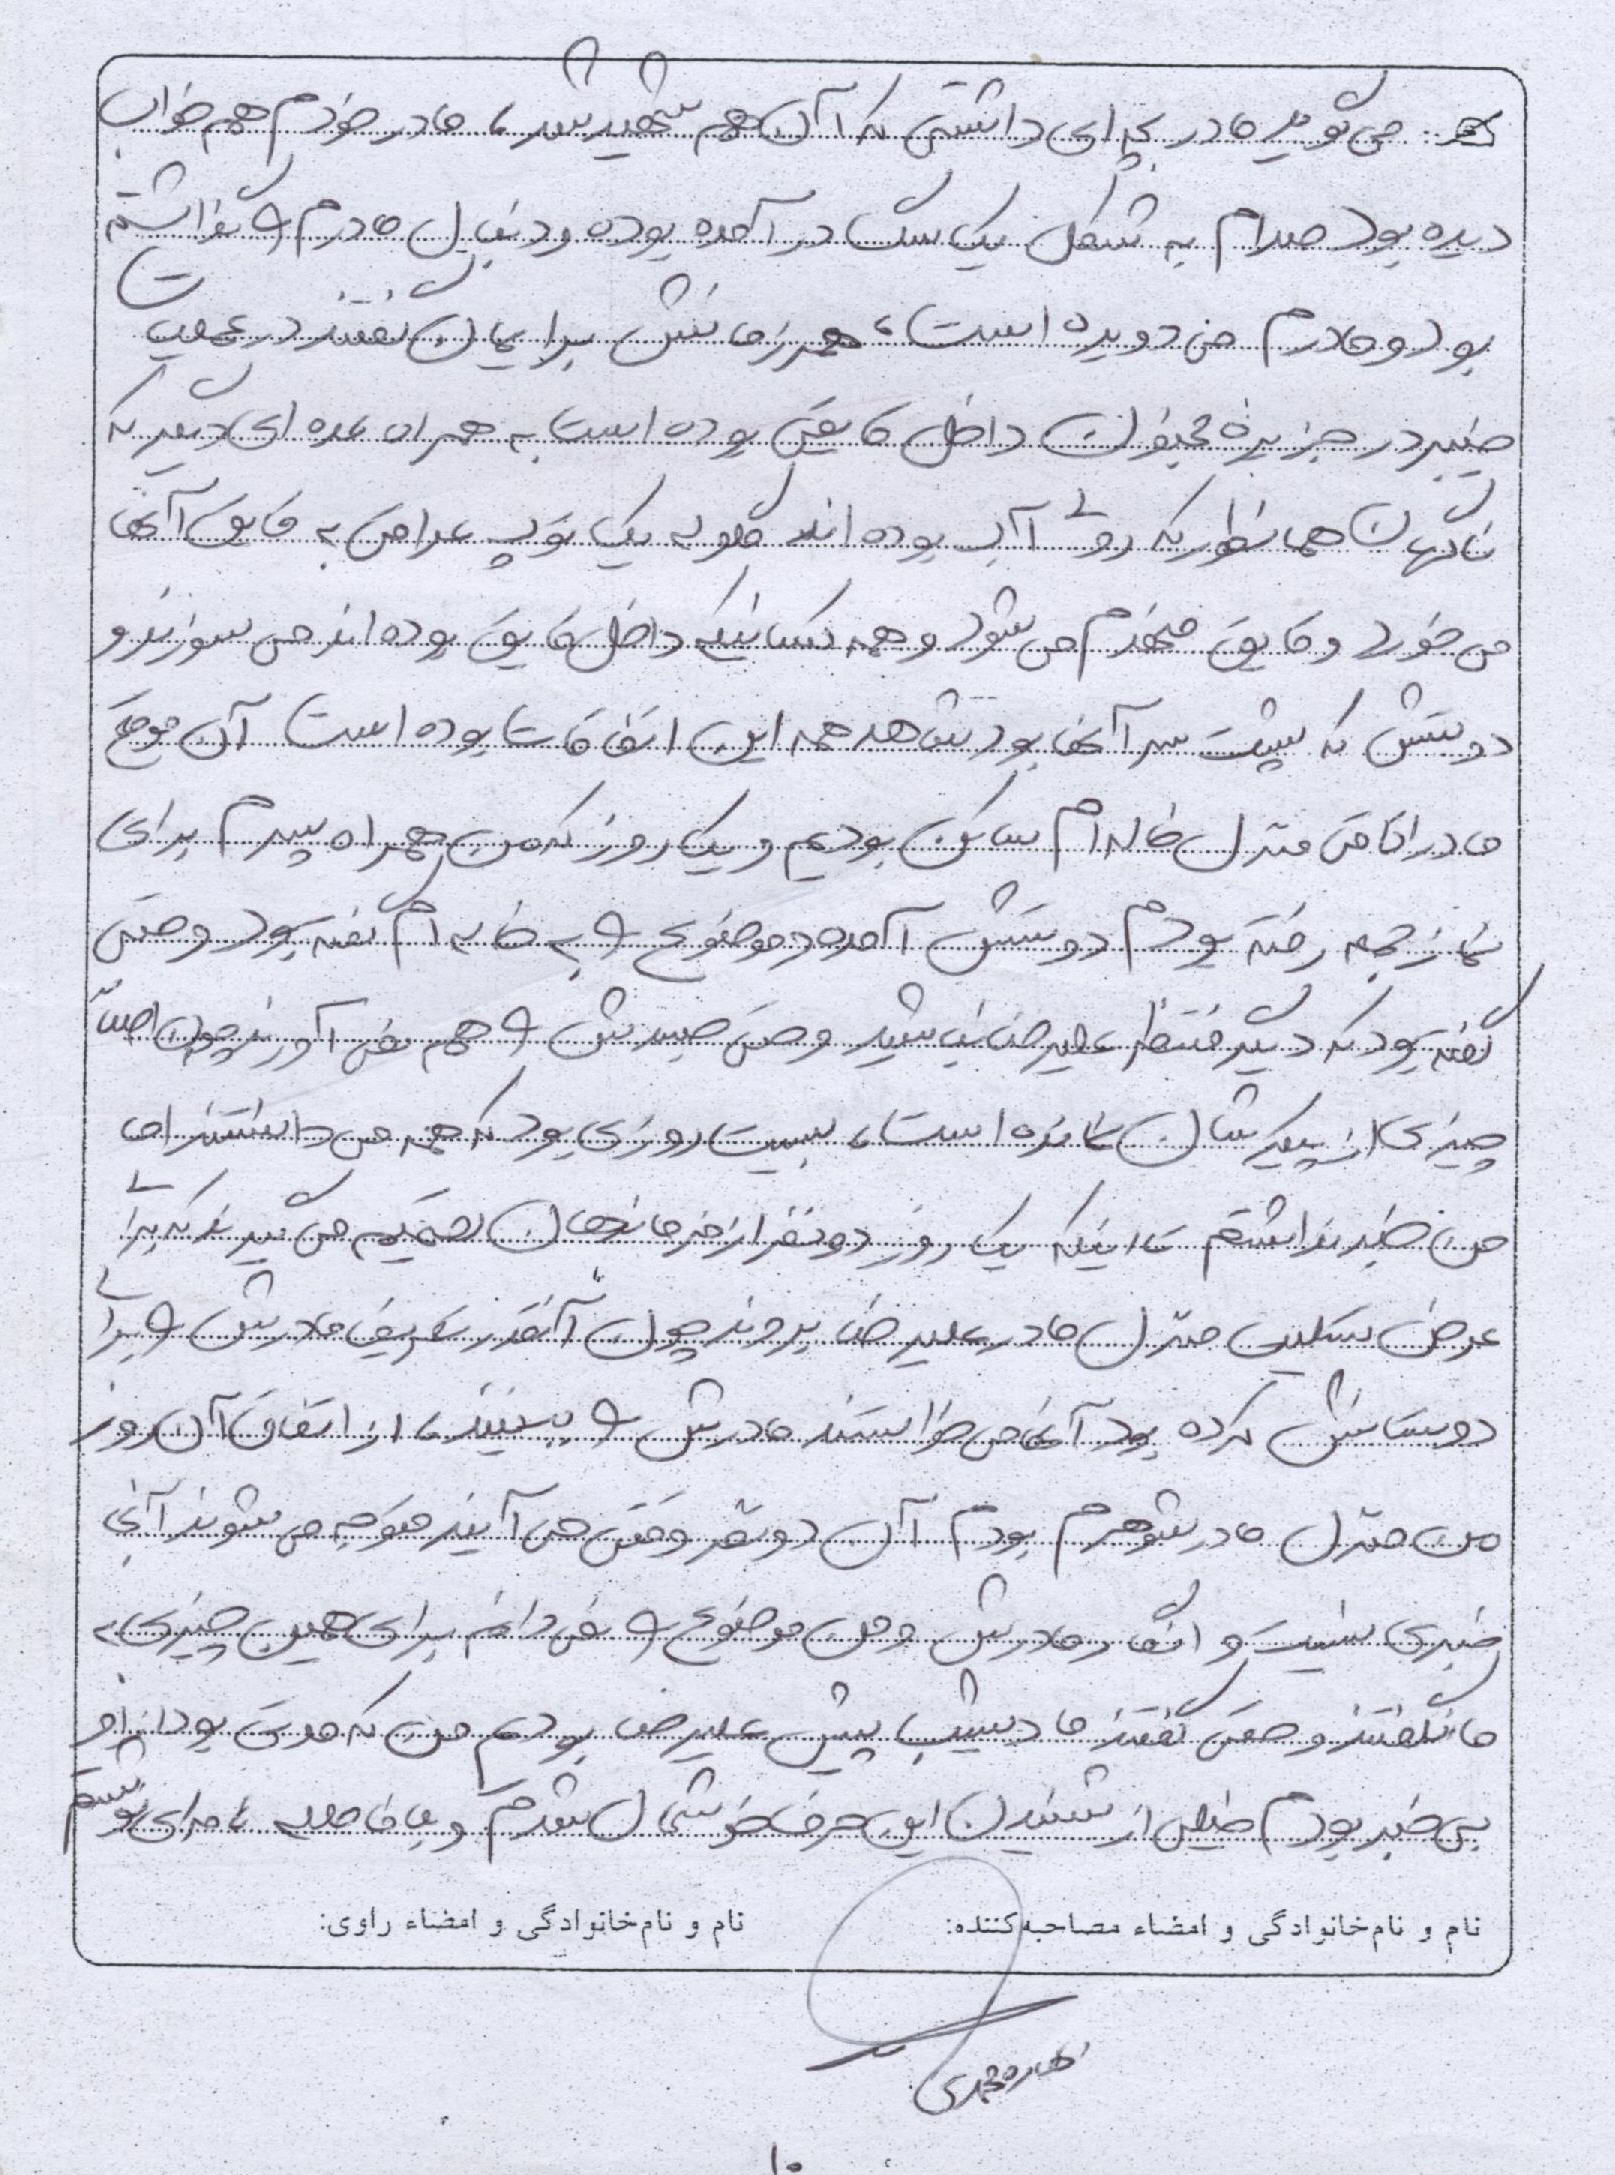 می‌گوید مادر بچه ای داشتی که آن هم شهید شد، مادر خودم هم خواب
دیده بود صدام به شکل یک سگ در آمده بوده و دنبال مادرم گذاشته
بود و مادرم می دویده است، همرزمانش برایمان گفتند در عملیات
خیبر در جزیرهٔ مجنون داخل قایق بوده است به همراه عده ای دیگر که
ناگهان همانطور که روی آب بوده اند گلوله یک توپ عراقی به قایق آنها
می خورد و قایق منهدم می شود و همه کسانیکه داخل قایق بوده اند می سوزند و
دوستش که پشت سر آنها بود شاهد همه این اتفاقات بوده است آن موقع
ما در اتاقی منزل خاله ام ساکن بودیم و یک روز که من همراه پسرم برای
نماز جمعه رفته بودم دوستش آمده و موضوع و به خاله ام گفته بود و حتی
گفته بود که دیگر منتظر علیرضا نباشید و حتی جسدش و هم نمی آورند چون اصلاً
چیزی از پیکرشان نمانده است، بیست روزی بود که همه می دانستند اما
من خبر نداشتم تا اینکه یک روز دو نفر از فرماندهان تصمیم می گیرند که برای
عرض تسلیت منزل مادر علیرضا بروند چون آنقدر تعریف مادرش و برای
دوستانش کرده بود آنها می خواستند مادرش و ببینند، از اتفاق آن روز
من منزل مادر شوهرم بودم آن دو نفر وقتی می آیند متوجه می شوند آنجا
خبری نیست و انگار مادرش و من موضوع و نمی دانیم برای همین چیزی به
ما نگفتند و حتی گفتند ما دیشب پیش علیرضا بودیم من که مدتی بود از او
بی خبر بودم خیلی از شنیدن این حرف خوشحال شدم و بلافاصله نامه ای نوشتم
نام و نام‌خانوادگی و امضاء مصاحبه‌کننده: نام و نام‌خانوادگی و امضاء راوی:
محمدی
۱۰